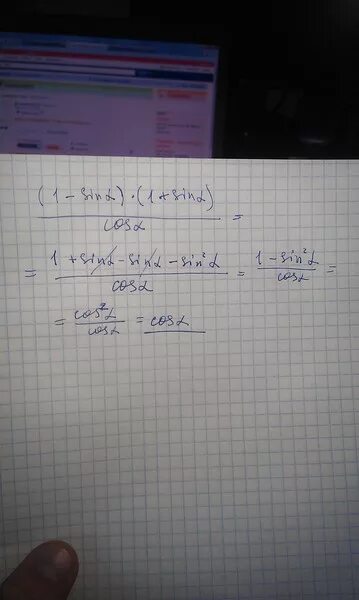 (1 - sinα) · (1 + sinα) / cosα =
= 1 + sinα - sinα - sin²α / cosα = 1 - sin²α / cosα =
= cos²α / cosα = cosα